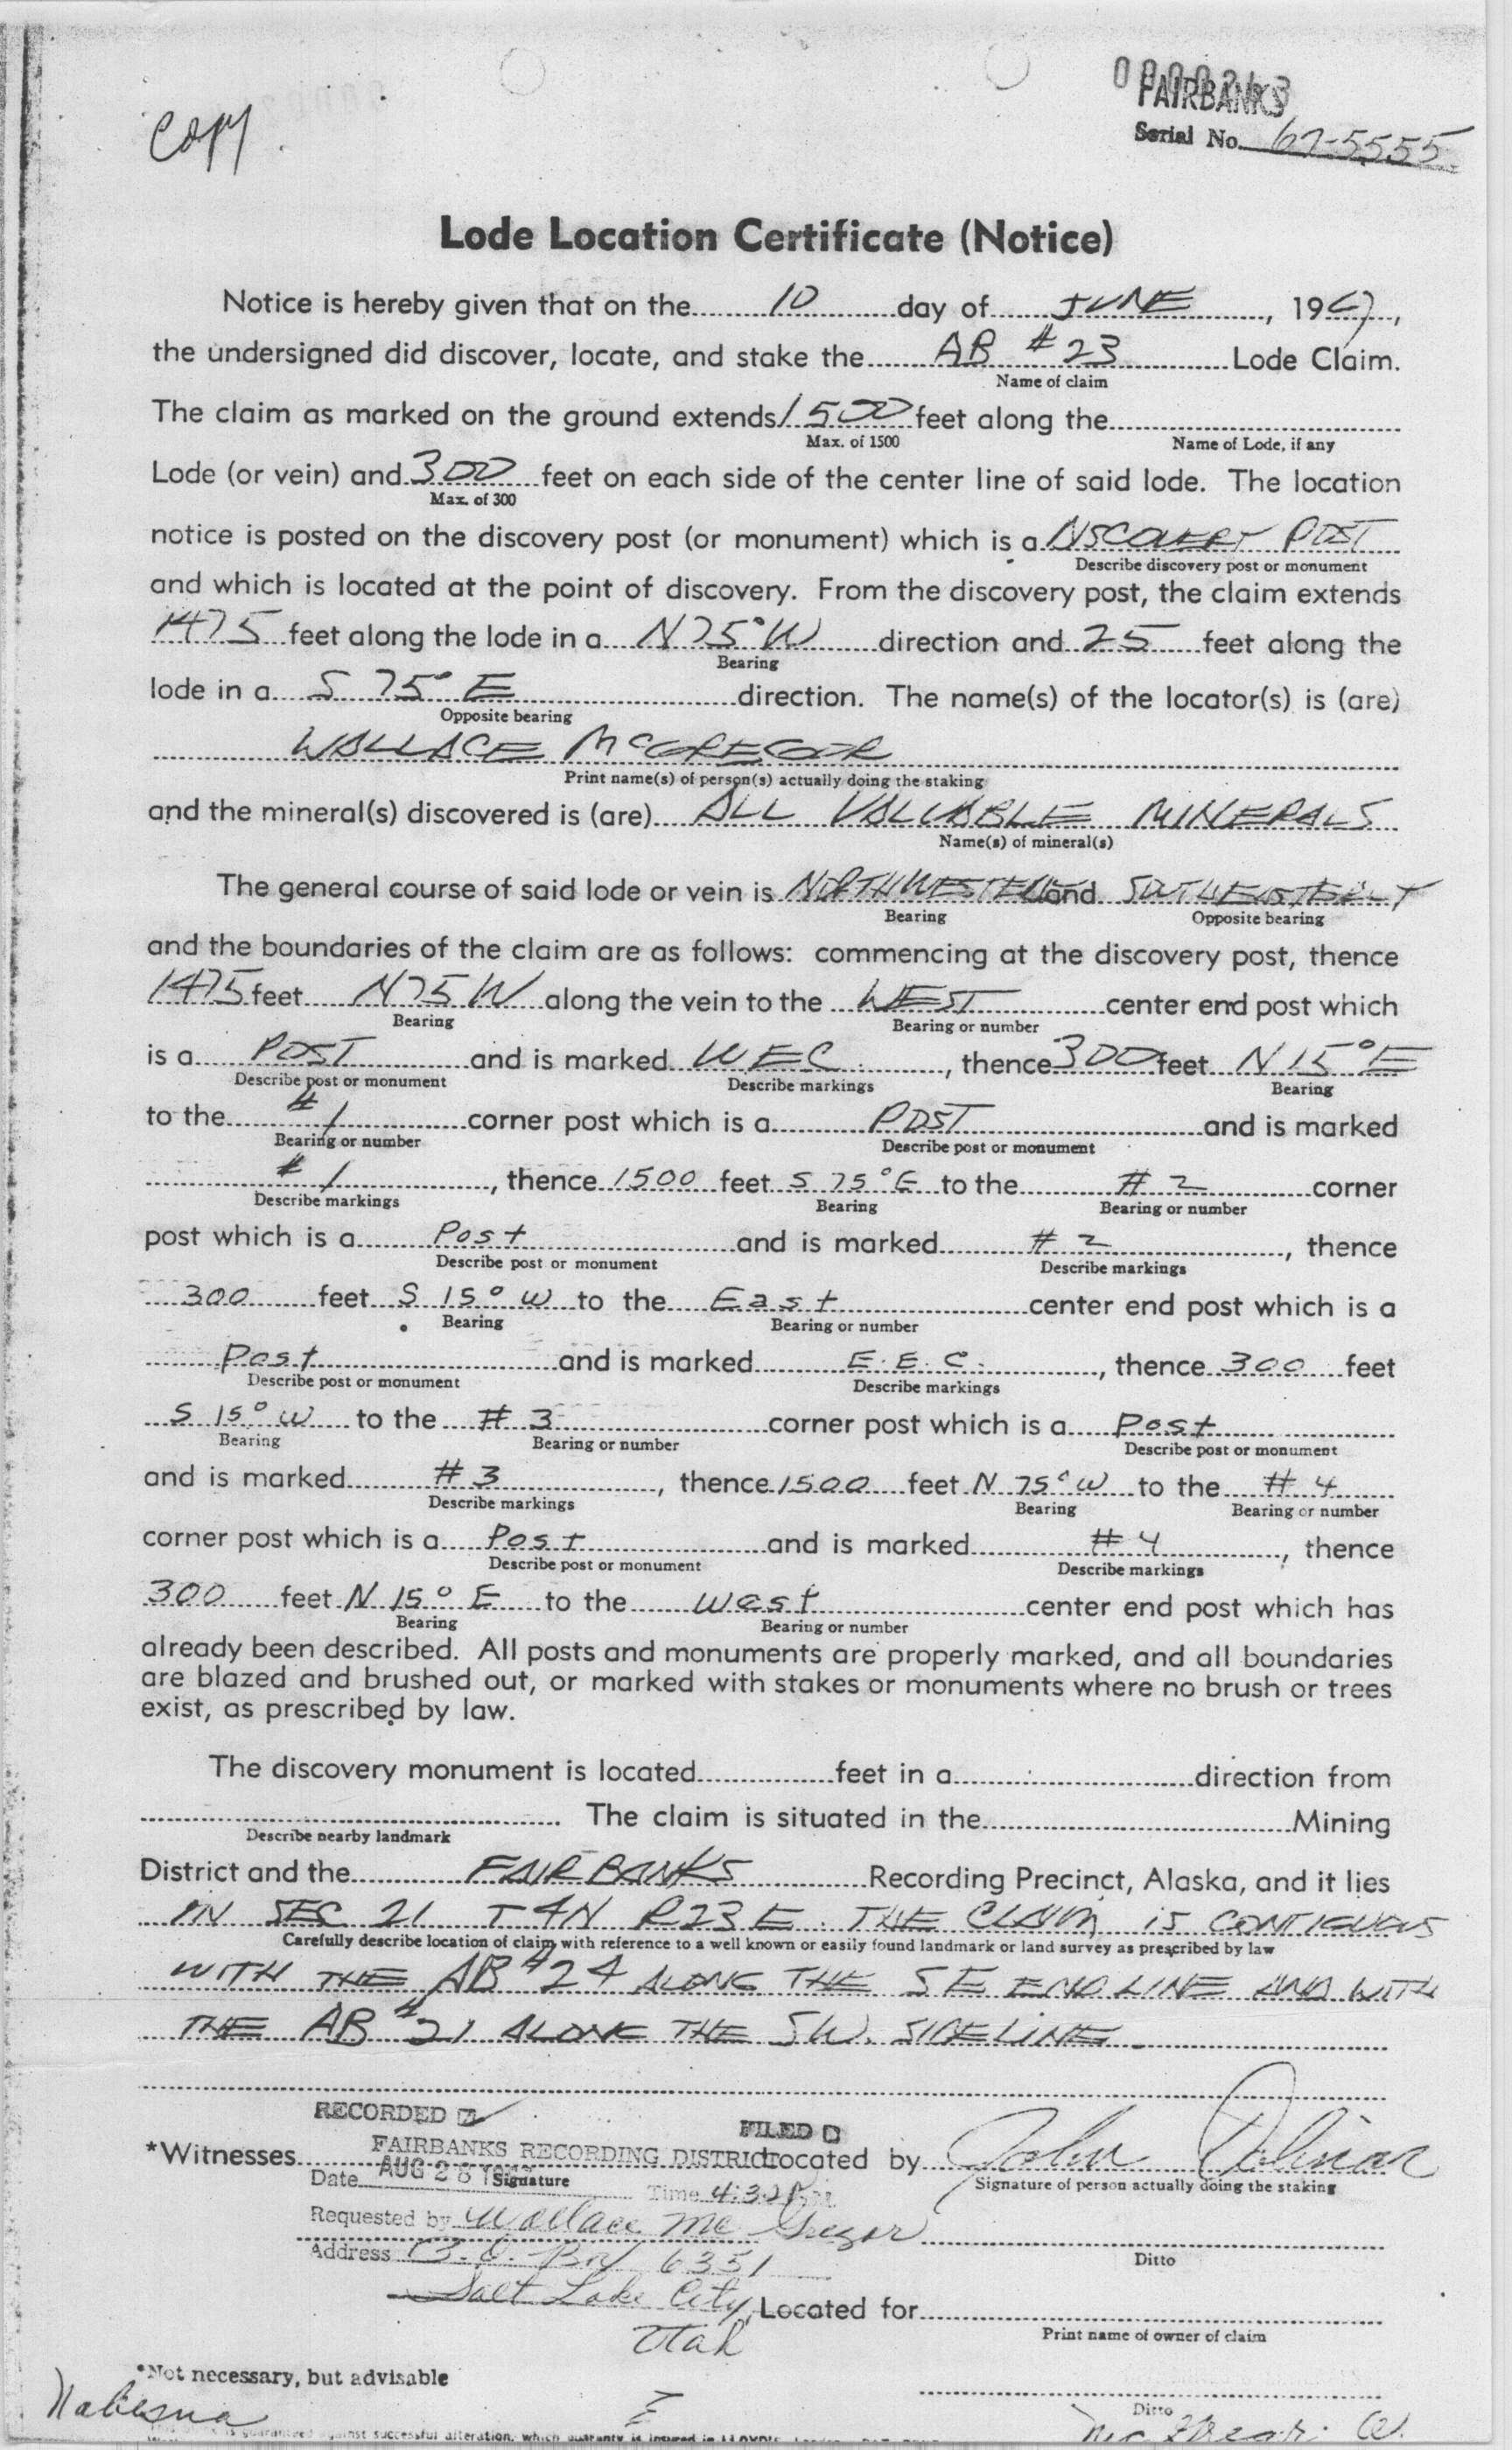 Copy.
FAIRBANKS
Serial No. 67-5555
Lode Location Certificate (Notice)
Notice is hereby given that on the 10 day of JUNE, 1967,
the undersigned did discover, locate, and stake the AB #23 Lode Claim.
Name of claim
The claim as marked on the ground extends 1500 feet along the
Max. of 1500 Name of Lode, if any
Lode (or vein) and 300 feet on each side of the center line of said lode. The location
Max. of 300
notice is posted on the discovery post (or monument) which is a DISCOVERY POST
Describe discovery post or monument
and which is located at the point of discovery. From the discovery post, the claim extends
1475 feet along the lode in a N75°W direction and 25 feet along the
Bearing
lode in a S 75° E direction. The name(s) of the locator(s) is (are)
Opposite bearing
WALLACE McGREGOR
Print name(s) of person(s) actually doing the staking
and the mineral(s) discovered is (are) ALL VALUABLE MINERALS
Name(s) of mineral(s)
The general course of said lode or vein is NORTHWESTERLY and SOUTHEASTERLY
Bearing Opposite bearing
and the boundaries of the claim are as follows: commencing at the discovery post, thence
1475 feet N75W along the vein to the WEST center end post which
Bearing Bearing or number
is a POST and is marked WEC, thence 300 feet N 15°E
Describe post or monument Describe markings Bearing
to the #1 corner post which is a POST and is marked
Bearing or number Describe post or monument
#1, thence 1500 feet S 75°E to the #2 corner
Describe markings Bearing Bearing or number
post which is a Post and is marked #2, thence
Describe post or monument Describe markings
300 feet S 15° W to the East center end post which is a
Bearing Bearing or number
Post and is marked E.E.C., thence 300 feet
Describe post or monument Describe markings
S 15° W to the #3 corner post which is a Post
Bearing Bearing or number Describe post or monument
and is marked #3, thence 1500 feet N 75° W to the #4
Describe markings Bearing Bearing or number
corner post which is a Post and is marked #4, thence
Describe post or monument Describe markings
300 feet N 15° E to the West center end post which has
Bearing Bearing or number
already been described. All posts and monuments are properly marked, and all boundaries
are blazed and brushed out, or marked with stakes or monuments where no brush or trees
exist, as prescribed by law.
The discovery monument is located feet in a direction from
. The claim is situated in the Mining
Describe nearby landmark
District and the FAIRBANKS Recording Precinct, Alaska, and it lies
IN SEC 21 T4N R23E. THE CLAIM IS CONTIGUOUS
Carefully describe location of claim with reference to a well known or easily found landmark or land survey as prescribed by law
WITH THE AB #24 ALONG THE SE ENDLINE AND WITH
THE AB #21 ALONG THE SW. SIDELINE
RECORDED FILED
*Witnesses FAIRBANKS RECORDING DISTRICT Located by John
Date AUG 28 Signature Time 4:32 PM Signature of person actually doing the staking
Requested by Wallace Mc Gregor
Address P.O. Box 6351 Ditto
Salt Lake City, Located for
Utah Print name of owner of claim
*Not necessary, but advisable
Nabesna Ditto